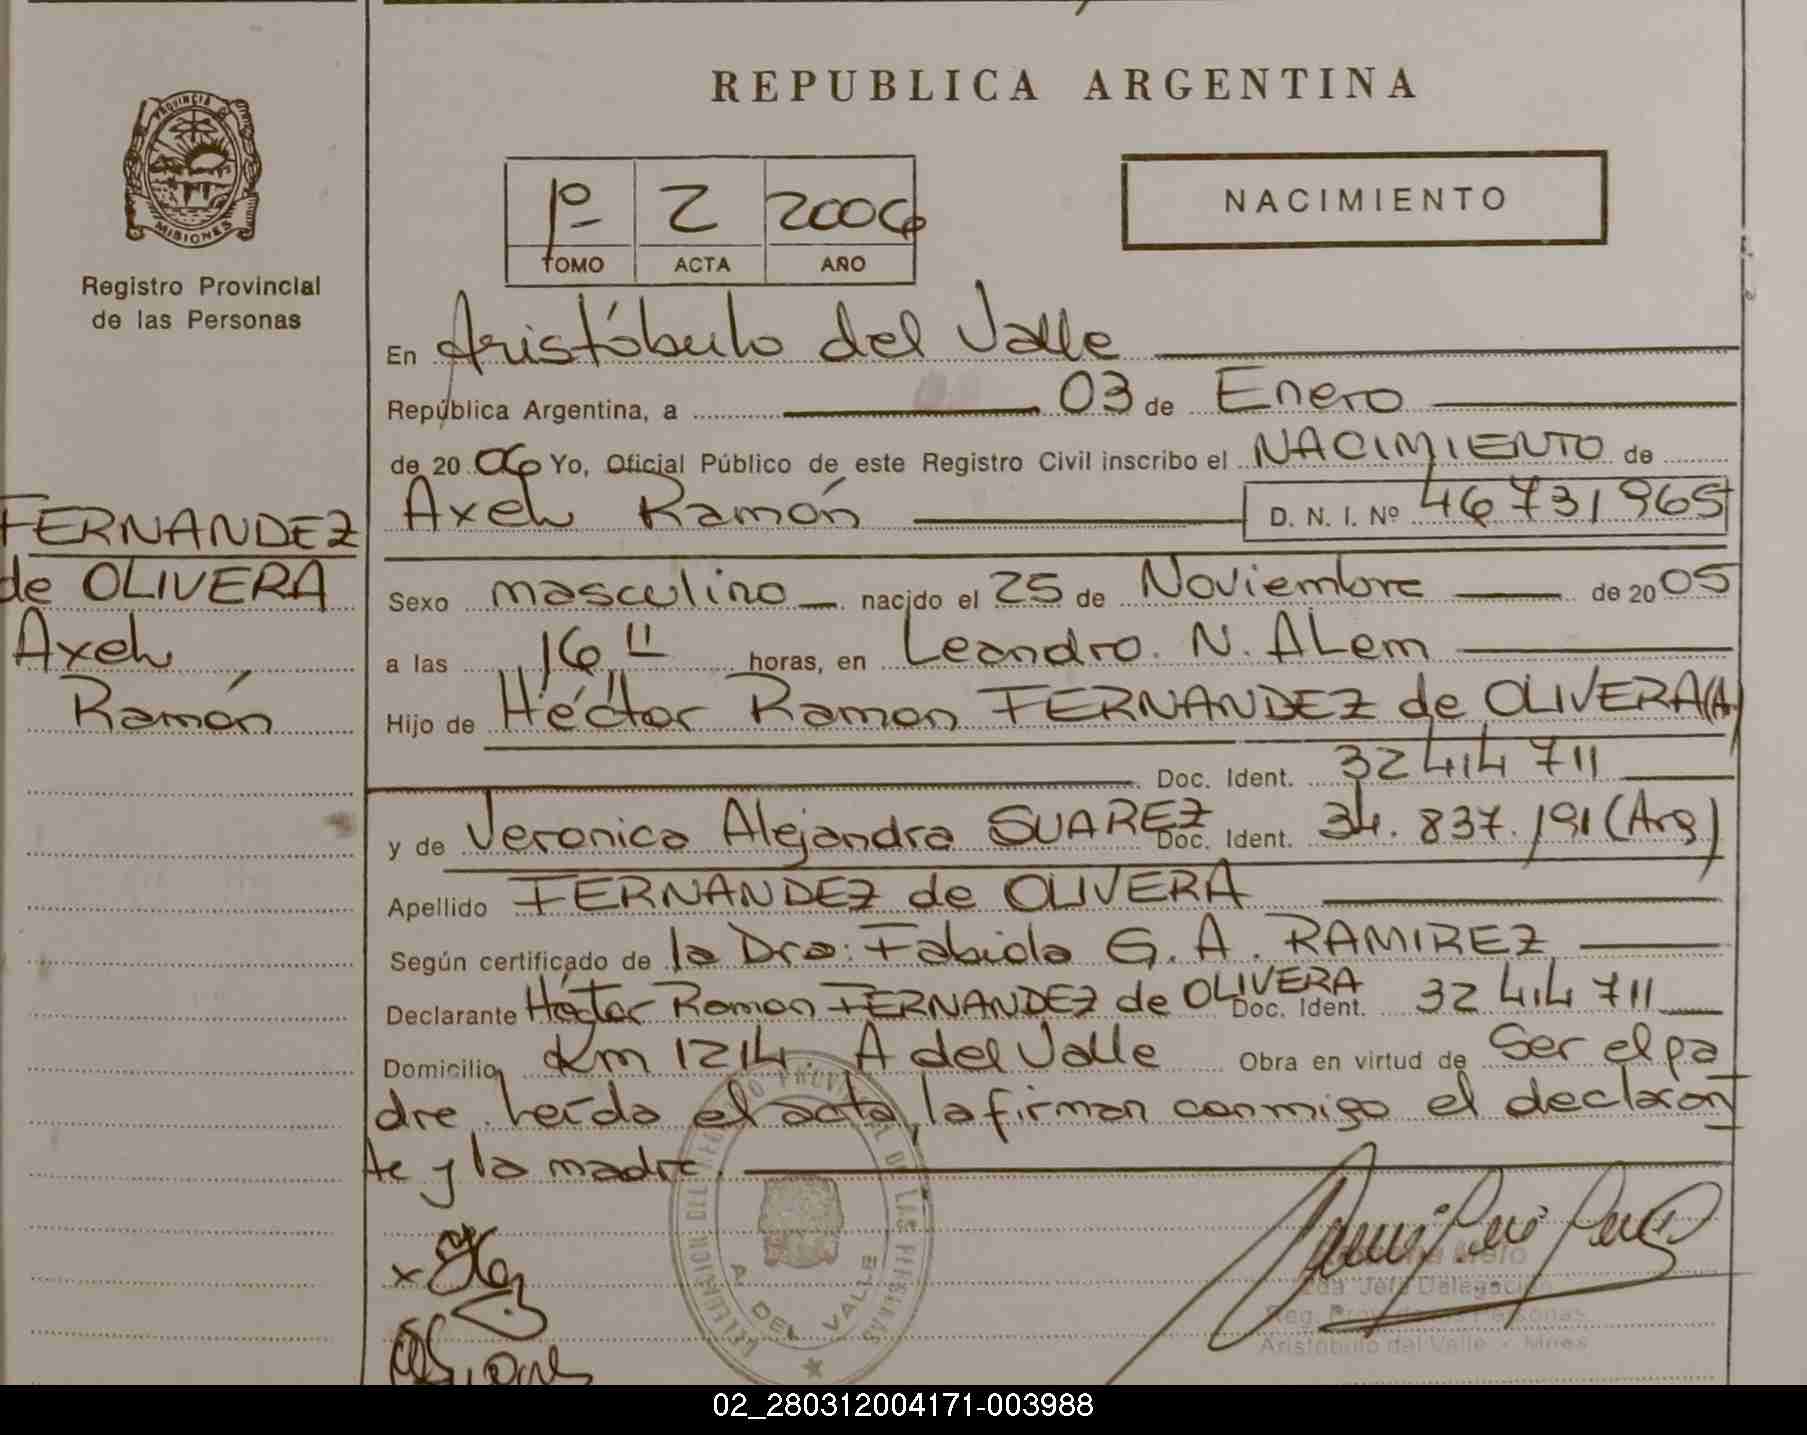 REPUBLICA ARGENTINA
PROVINCIA D
MISIONES
Registro Provincial
de las Personas
1º 2 2006
TOMO ACTA AÑO
NACIMIENTO
En Aristóbulo del Valle
República Argentina, a 03 de Enero
de 2006 Yo, Oficial Público de este Registro Civil inscribo el NACIMIENTO de
Axel Ramón D. N. I. Nº 46731965
FERNANDEZ
de OLIVERA
Axel
Ramón
Sexo masculino nacido el 25 de Noviembre de 2005
a las 16 horas, en Leandro. N. ALem
Hijo de Héctor Ramon FERNANDEZ de OLIVERA(A)
Doc. Ident. 32414711
y de Veronica Alejandra SUAREZ Doc. Ident. 34.837.191 (Arg)
Apellido FERNANDEZ de OLIVERA
Según certificado de la Dra: Fabiola G. A. RAMIREZ
Declarante Héctor Ramon FERNANDEZ de OLIVERA Doc. Ident. 32414711
Domicilio Km 1214. A del Valle Obra en virtud de Ser el pa
dre. Leída el acta, la firman conmigo el declaran
te y la madre.
DELEGACION DEL REGISTRO PROVINCIAL DE LAS PERSONAS
A DEL VALLE
Jefa Delegación
Reg. Prov. de Personas
Aristóbulo del Valle - Mnes
02_280312004171-003988